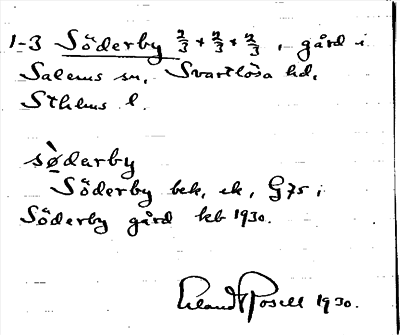 1-3 Söderby 2/3 + 2/3 + 2/3, gård i
Salems sn, Svartlösa hd,
Sthlms l.
sø̀darby
Söderby bek, ek, G75 i
Söderby gård kb 1930.
Erland Rosell 1930.